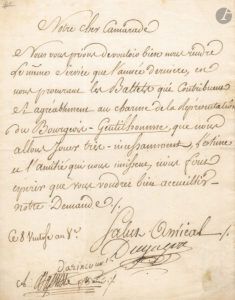 Notre cher Camarade
Nous vous prions de vouloir bien nous rendre
le même Service que l'année dernière, en
nous procurant les Ballets qui Contribuent
Si agréablement au charme de la représentation
du Bourgeois-Gentilhomme, que nous
allons Jouer très-incessamment, l'estime
et l'amitié qui nous unissent, nous font
espérer que vous voudrez bien accueillir
notre Demande
Ce 8 an 8e.
Salut Amical
Dazincourt